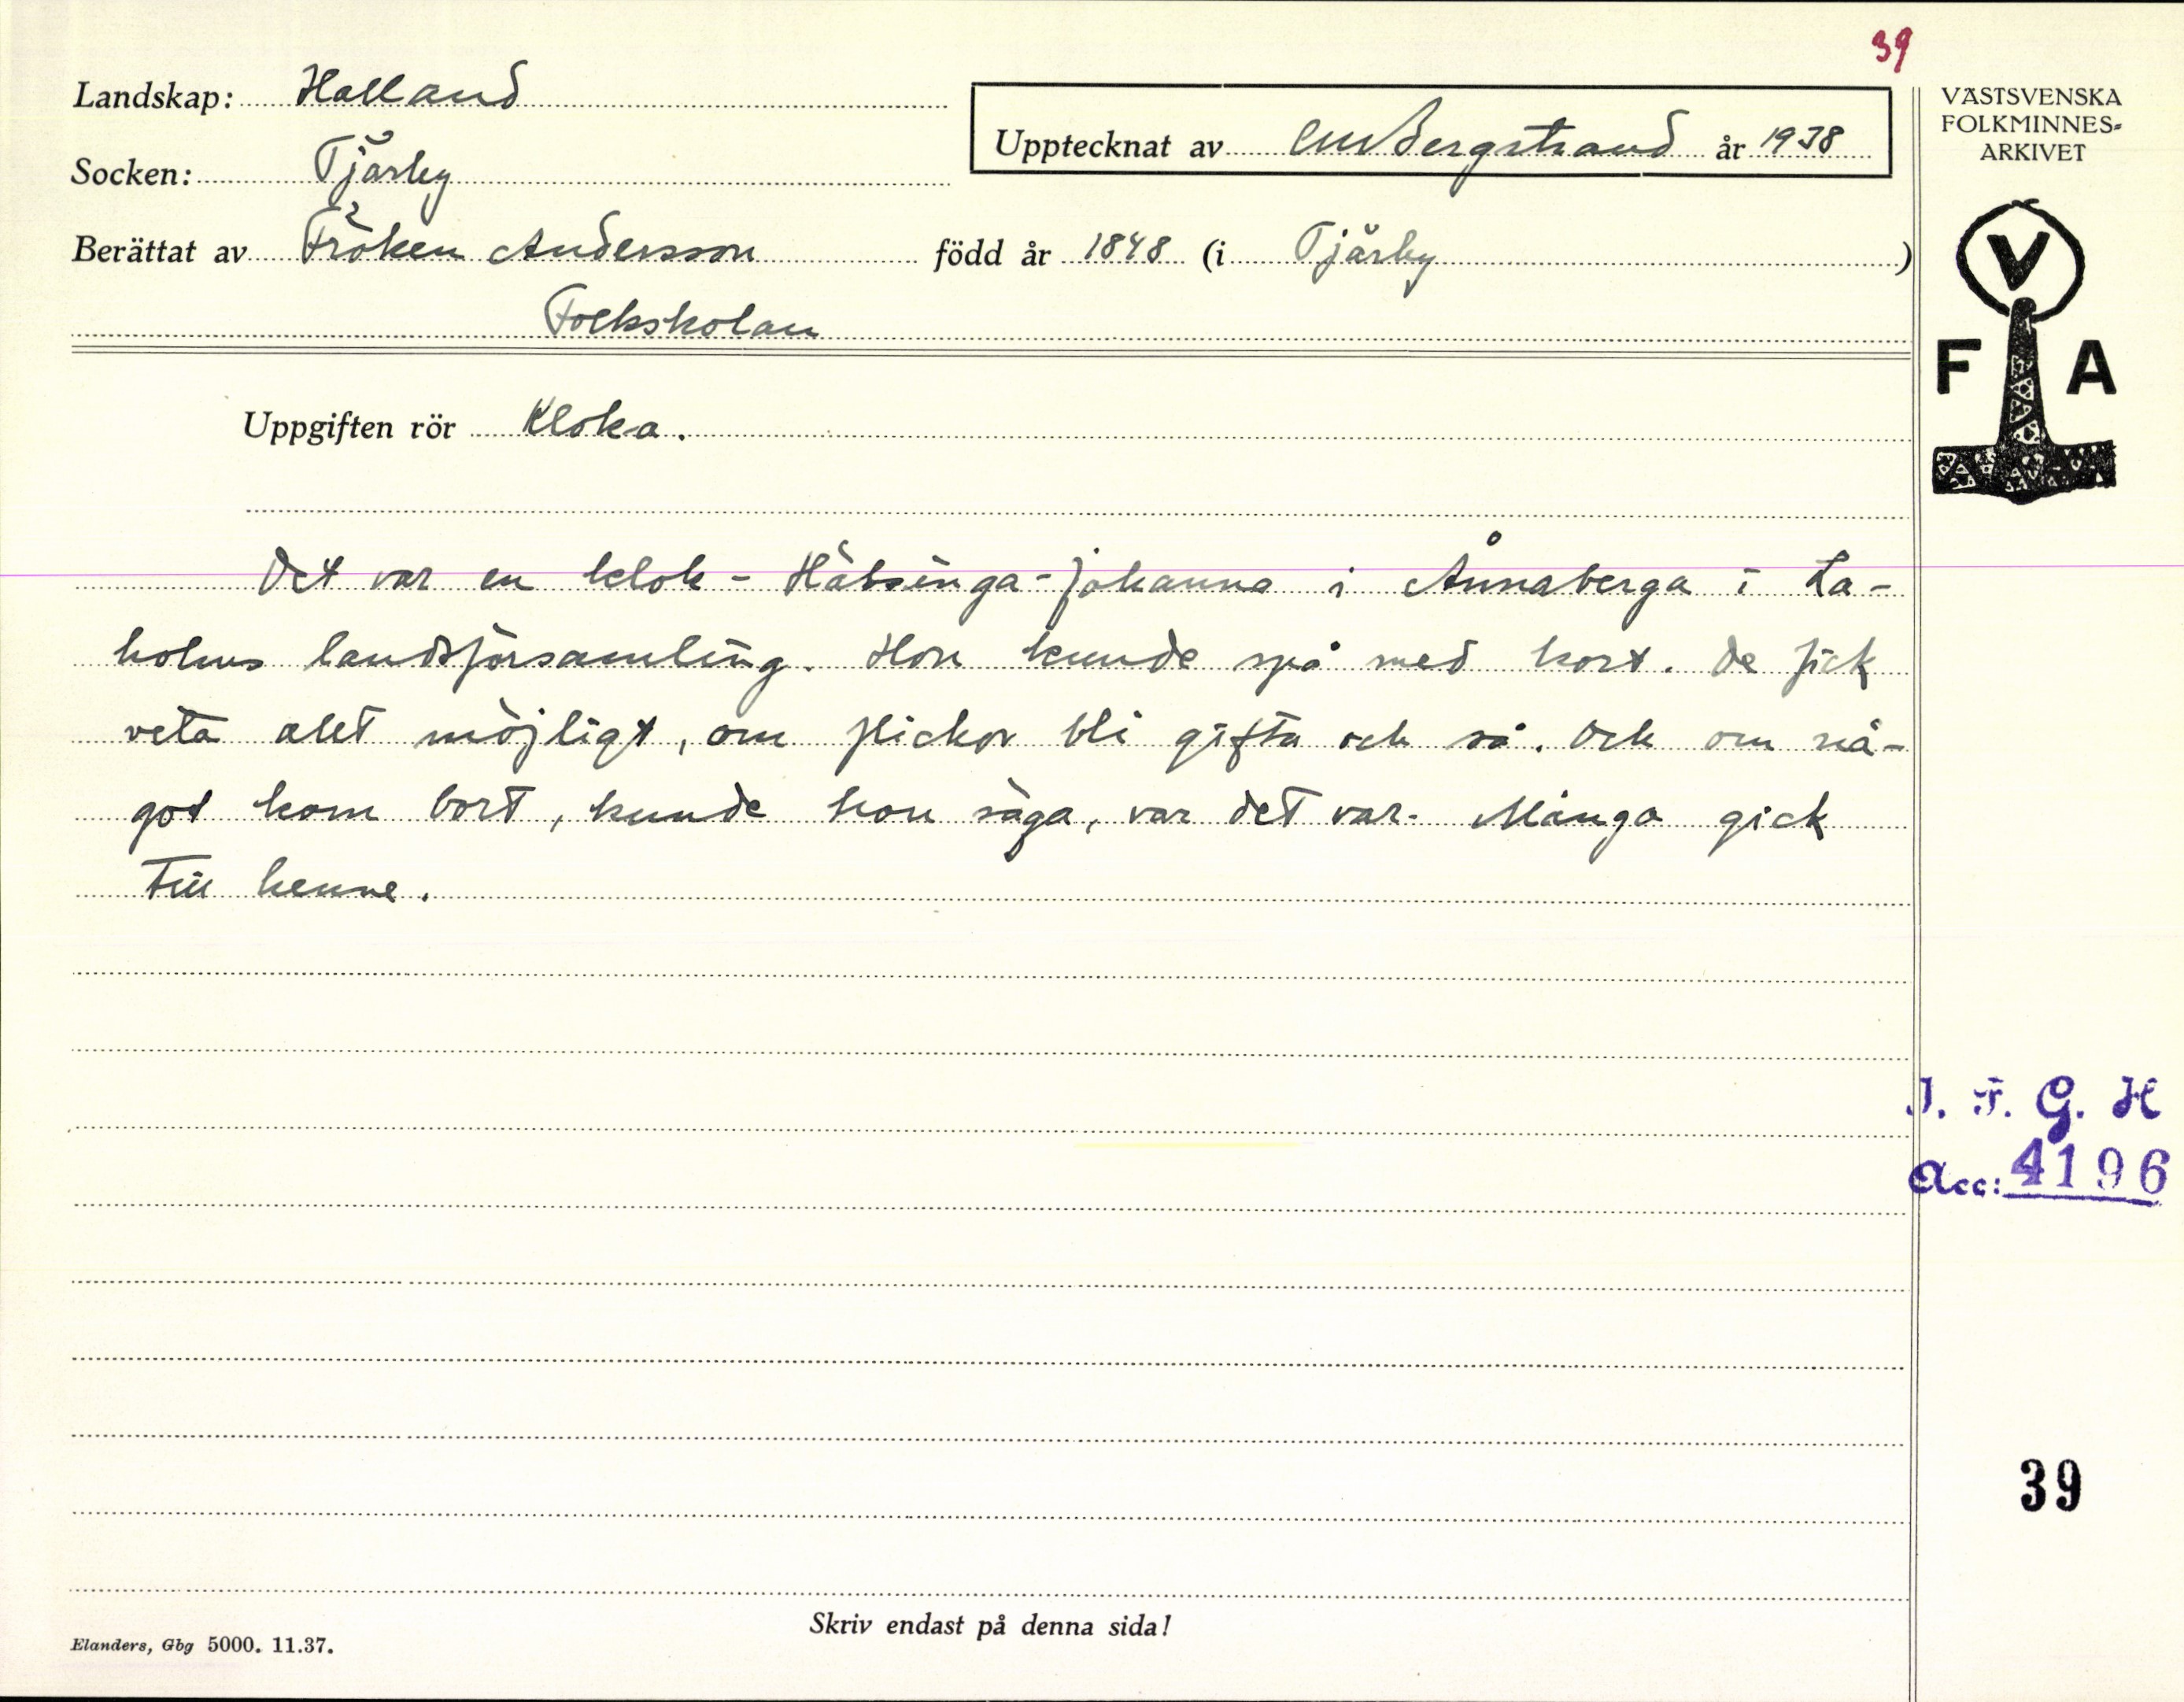 39
Landskap: Halland
Upptecknat av CMBergstrand år 1938
Socken: Tjärby
Berättat av Fröken Andersson född år 1848 (i Tjärby)
Folkskolan
VÄSTSVENSKA
FOLKMINNES-
ARKIVET
V
F A
Uppgiften rör Kloka.
Det var en klok - Hälsinga-Johanna i Ånnaberga i La-
holms landsförsamling. Hon kunde spå med kort. De fick
veta allt möjligt, om flickor bli gifta och så. Och om nå-
got kom bort, kunde hon säga, var det var. Många gick
till henne.
I. F. G. H
Acc: 4196
39
Skriv endast på denna sida!
Elanders, Gbg 5000. 11.37.